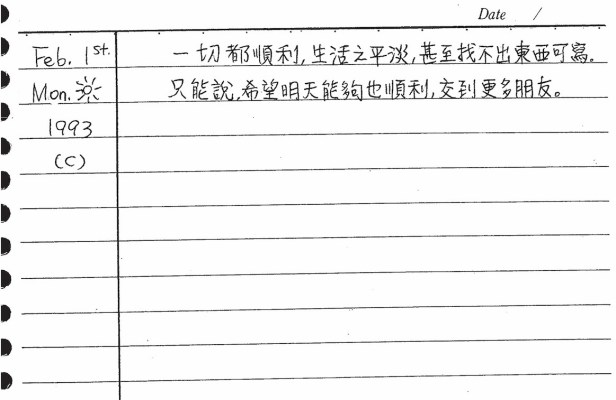 Date /
Feb. 1st. 一切都順利,生活之平淡,甚至找不出東西可寫.
Mon. 只能說,希望明天能夠也順利,交到更多朋友。
1993
(C)